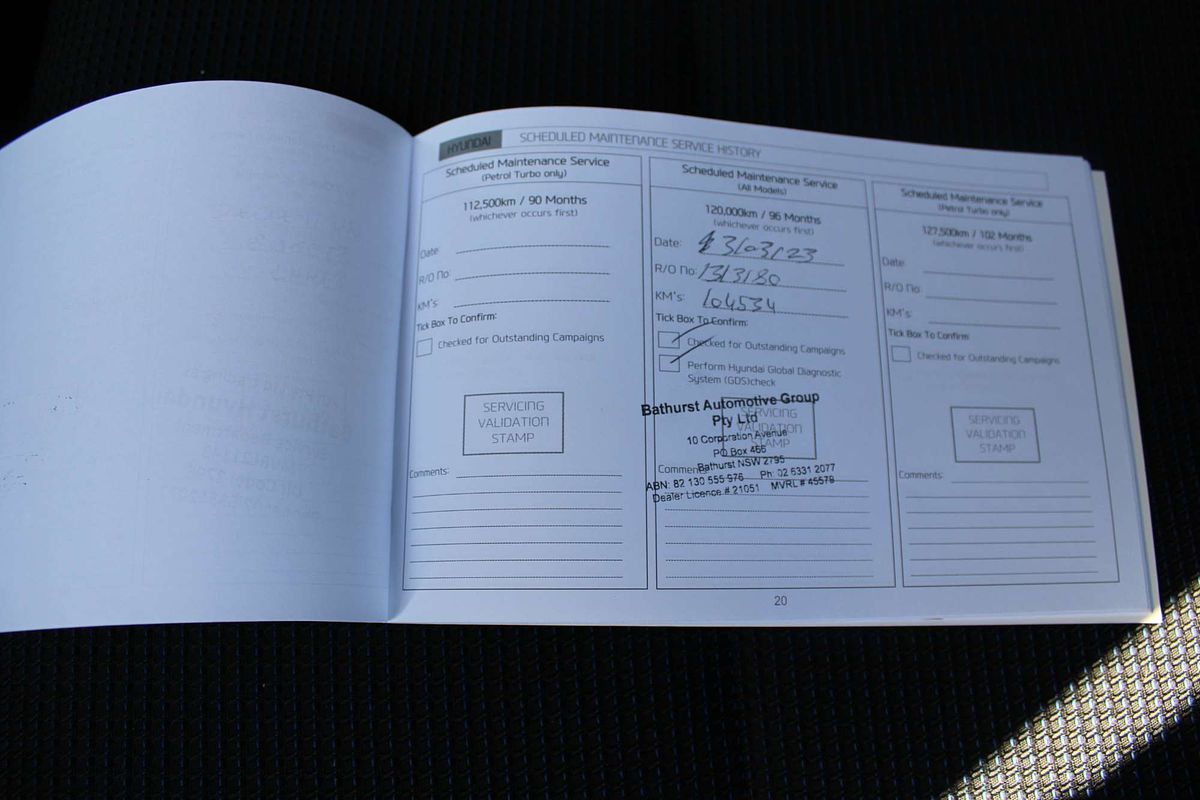 HYUNDAI
SCHEDULED MAINTENANCE SERVICE HISTORY
Scheduled Maintenance Service
(Petrol Turbo only)
112,500km / 90 Months
(whichever occurs first)
Date:
R/O No:
KM's:
Tick Box To Confirm:
Checked for Outstanding Campaigns
SERVICING
VALIDATION
STAMP
Comments:
Scheduled Maintenance Service
(All Models)
120,000km / 96 Months
(whichever occurs first)
Date: 3/03/23
R/O No: 1313180
KM's: 104534
Tick Box To Confirm:
Checked for Outstanding Campaigns
Perform Hyundai Global Diagnostic
System (GDS)check
SERVICING
VALIDATION
STAMP
Bathurst Automotive Group
Pty Ltd
10 Corporation Avenue
PO Box 466
Bathurst NSW 2795
Comments:
ABN: 82 130 555 976 Ph: 02 6331 2077
Dealer Licence # 21051 MVRL # 45579
Scheduled Maintenance Service
(Petrol Turbo only)
127,500km / 102 Months
(whichever occurs first)
Date:
R/O No:
KM's:
Tick Box To Confirm
Checked for Outstanding Campaigns
SERVICING
VALIDATION
STAMP
Comments:
20